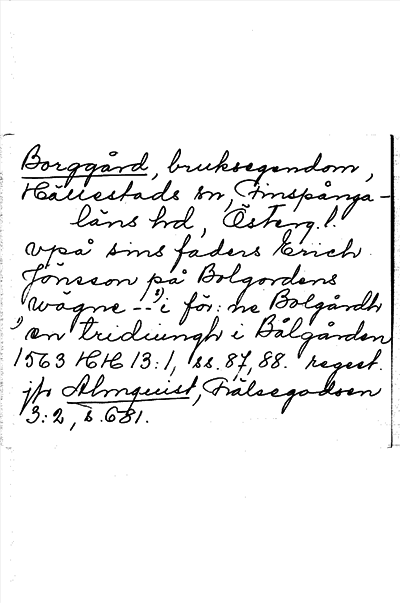 Borggård, bruksegendom,
Hällestads sn, Finspånga-
läns hd, Österg.l.
vpå sins faders Erich
Jönsson på Bolgordens
wägne --- 1) i för:ne Bolgårdh
1) en tridiungh i Bålgården
1563 HH 13:1, ss. 87, 88. regest.
jfr Almquist, Frälsegodsen
3:2, s. 681.